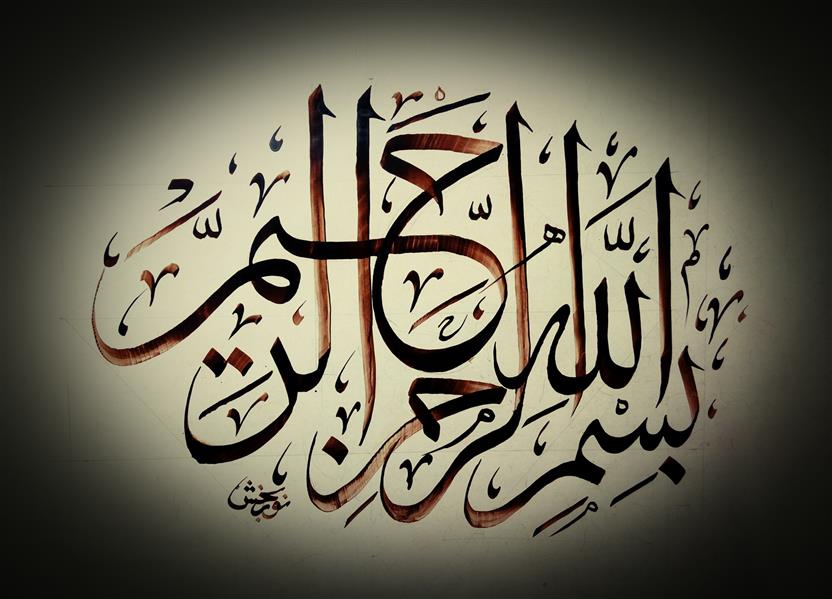 بِسْمِ اللَّهِ الرَّحْمَنِ الرَّحِيمِ
نوربخش